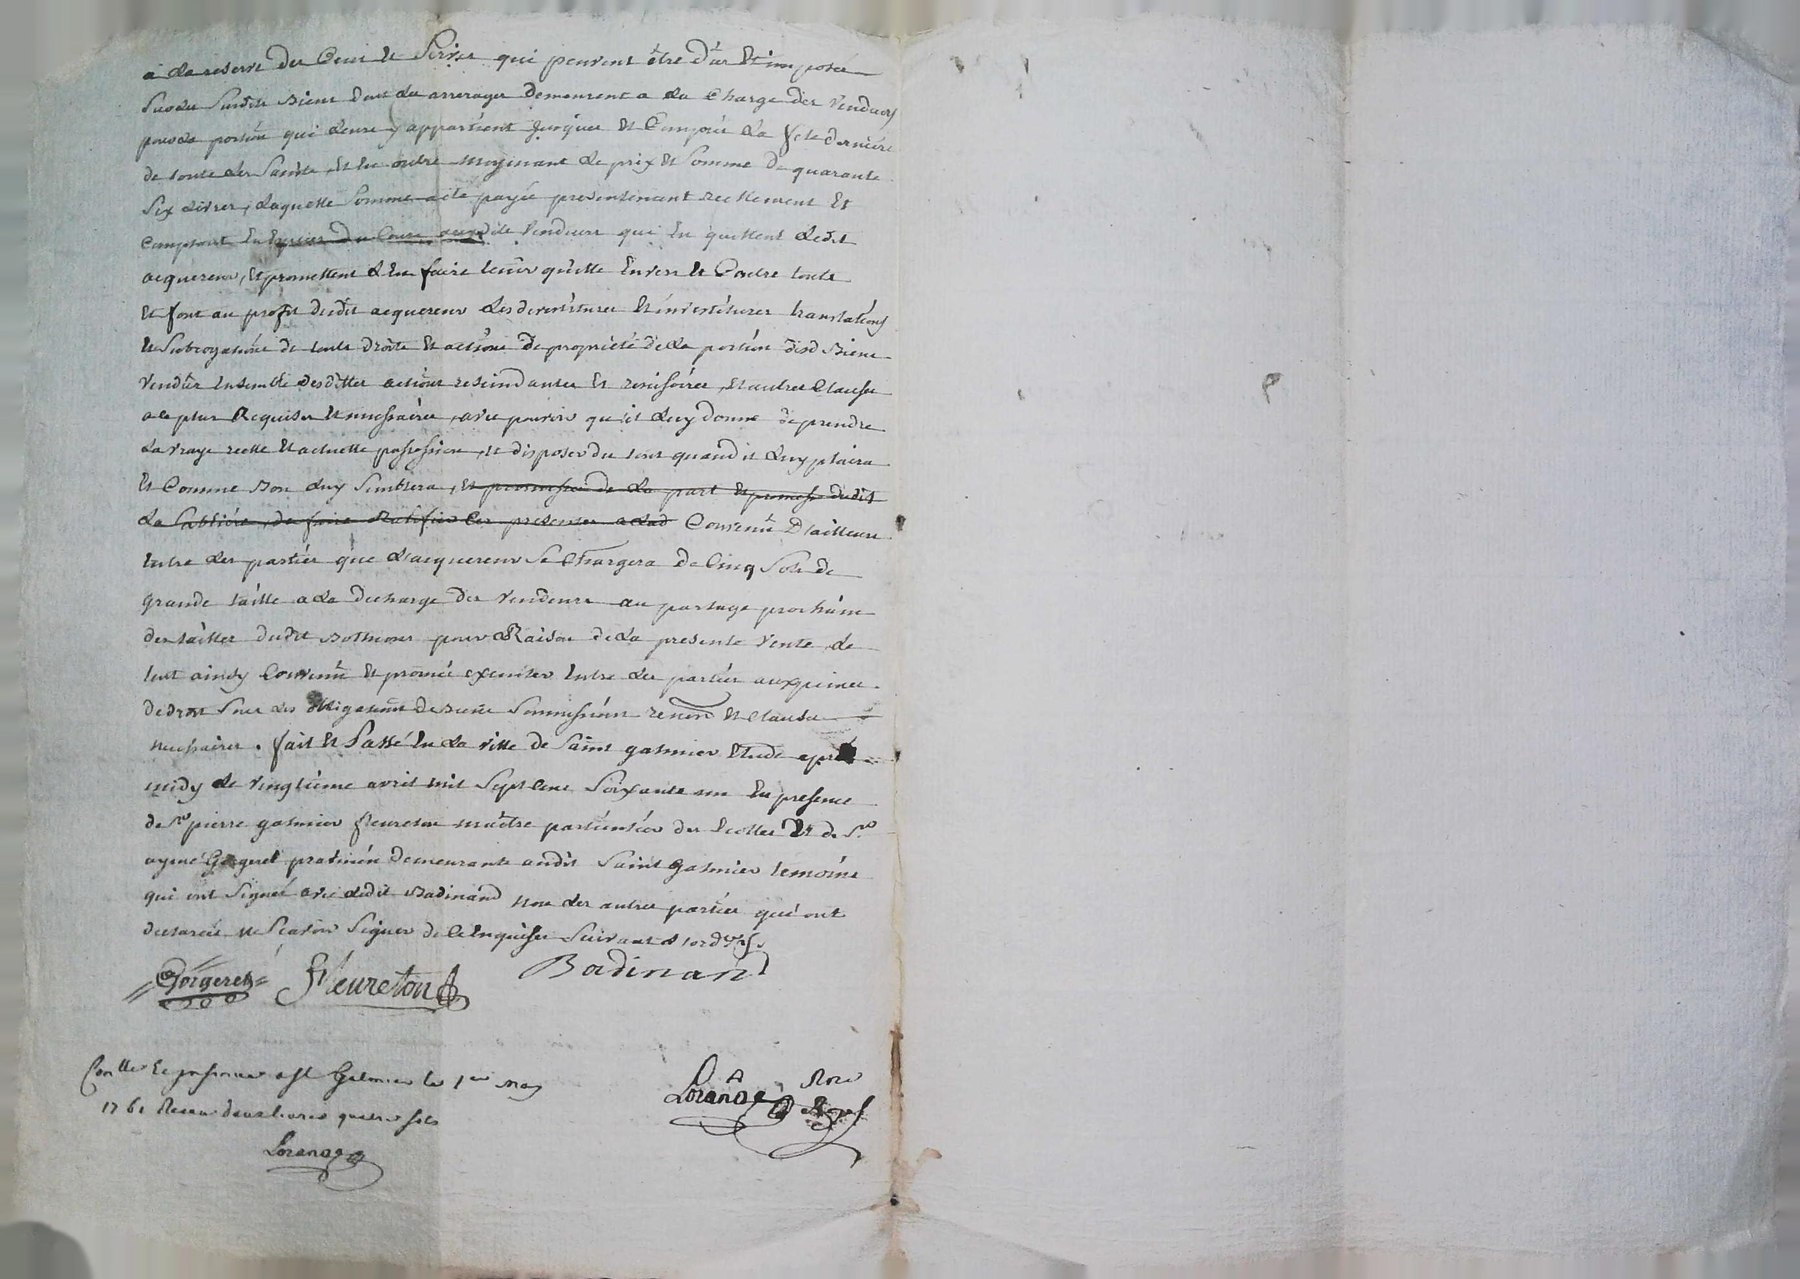 a La reserve des Cens et Servis qui peuvent être dus Et imposés
Sur les Susdits Biens dont Les arrerages demeurent a La Charge des Vendeurs
pour La portion qui Leure y appartient Jusques Et Compris La fete derniere
de toute Les Saints, Et En outre moyenant Le prix Et Somme de quarante
Six Livres, Laquelle Somme a été payée presentenant reellement Et
Comptant En Espèces du Cours auxdits Vendeurs qui En quittent Ledit
acquereur, Et promettent L'En faire tenir quitte Envers Et Contre toute
Et font au profit dudit acquereur Les devestitures Et investitures translations
Et Subrogations de touts droits Et actions de propriété de La portion desd Biens
Vendus Ensemble desdittes actions rescindantes Et rescisoires, Et autres Clauses
a ce plus Requises Et necessaires, avec pouvoir qu'il Luy donne de prendre
La vraye reelle Et actuelle possession, Et disposer du tout quand il Luy plaira
Et Comme Bon Luy Semblera, Et promesse de La part Et promesse dudit
La Sabliere, de faire Ratifier Les presentes a Lad Convenu D'ailleurs
Entre Les parties que L'acquereur Se Chargera de Cinq Sols de
grande taille a La decharge des Vendeurs au partage prochain
des tailles dudit Bothions pour Raison de La presente Vente, Le
tout ainsy Convenu Et promis executer Entre Les parties aux peines
de droit Sous Les obligations de Biens Soumissions renond Et Clauses
necessaires. fait Et Passé En La ville de Saint galmier Etude après
midy Le Vingtième avril mil Sept Cent Soixante un En presence
de Sr pierre galmier fleureton maître particulier des Ecolles Et de Sr
aymé Gorgeret praticien demeurants audit Saint Galmier temoins
qui ont Signés avec Ledit Badinand non Les autres parties qui ont
declarés ne Scavoir Signer de ce Enquises Suivant L'ord
Gorgeret Fleureton Badinand
Conllé Et St Galmier le 1er May
1761 Receu deux livres quatre sols
Loranoe
Loranoe Nore